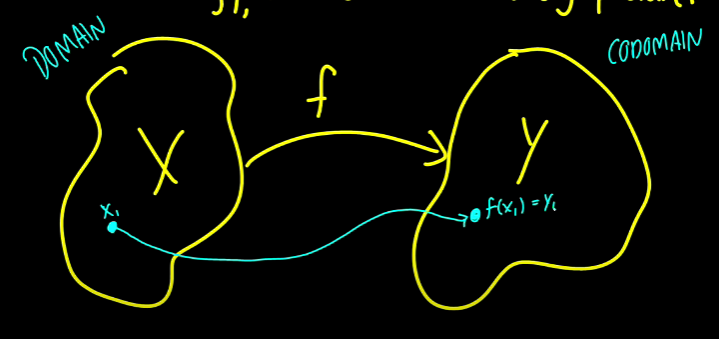 DOMAIN
CODOMAIN
f
X
Y
x₁
f(x₁) = y₁